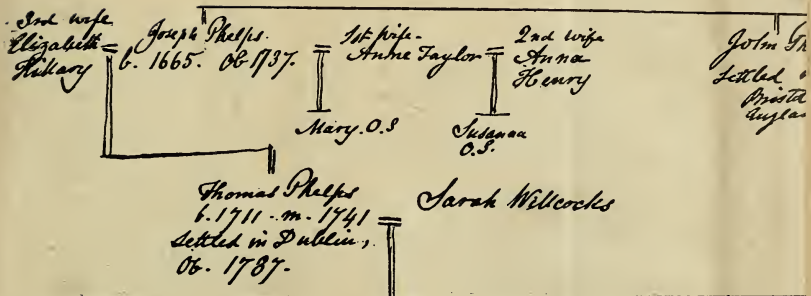 3rd wife
Elizabeth =
Hillary
Joseph Phelps.
b. 1665. Ob 1737. =
1st wife-
Anne Taylor =
2nd wife
Anna
Henry
John Ph
Settled
Bristo
Englan
Mary. O.S
Susanna
O.S.
Thomas Phelps
b. 1711 - m. 1741 =
Settled in Dublin,
Ob. 1787.
Sarah Willcocks